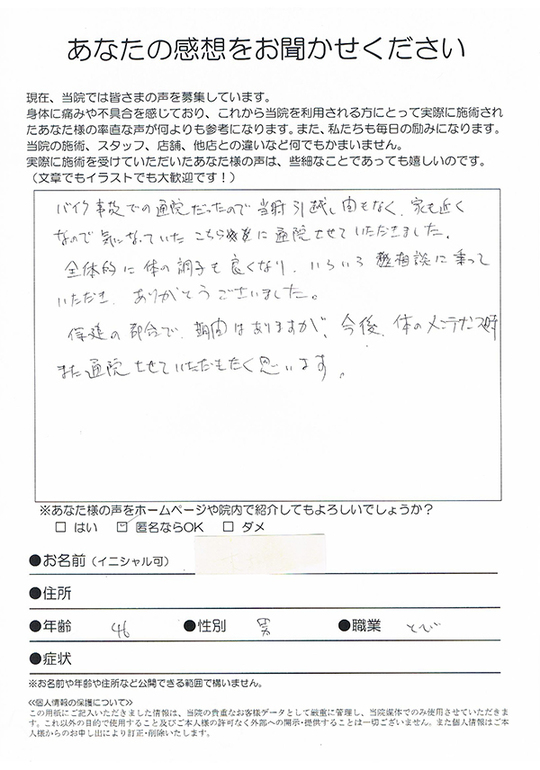 あなたの感想をお聞かせください
現在、当院では皆さまの声を募集しています。
身体に痛みや不具合を感じており、これから当院を利用される方にとって実際に施術され
たあなた様の率直な声が何よりも参考になります。また、私たちも毎日の励みになります。
当院の施術、スタッフ、店舗、他店との違いなど何でもかまいません。
実際に施術を受けていただいたあなた様の声は、些細なことであっても嬉しいのです。
（文章でもイラストでも大歓迎です！）
バイク事故での通院だったので当時引越し間もなく、家も近く
なので気になっていたこちらに通院させていただきました。
全体的に体の調子も良くなり、いろいろ相談に乗って
いただき、ありがとうございました。
保険の都合で、期間はありますが、今後、体のメンテナンス時
また通院させていただきたく思います。
※あなた様の声をホームページや院内で紹介してもよろしいでしょうか？
□ はい ☑ 匿名ならOK □ ダメ
●お名前（イニシャル可）
●住所
●年齢 46 ●性別 男 ●職業 とび
●症状
※お名前や年齢や住所など公開できる範囲で構いません。
≪個人情報の保護について≫
この用紙にご記入いただきました情報は、当院の貴重なお客様データとして厳重に管理し、当院媒体でのみ使用させていただきま
す。これ以外の目的で使用すること及びご本人様の許可なく外部への開示・提供することは一切ございません。また個人情報はご本
人様からのお申し出により訂正・削除いたします。